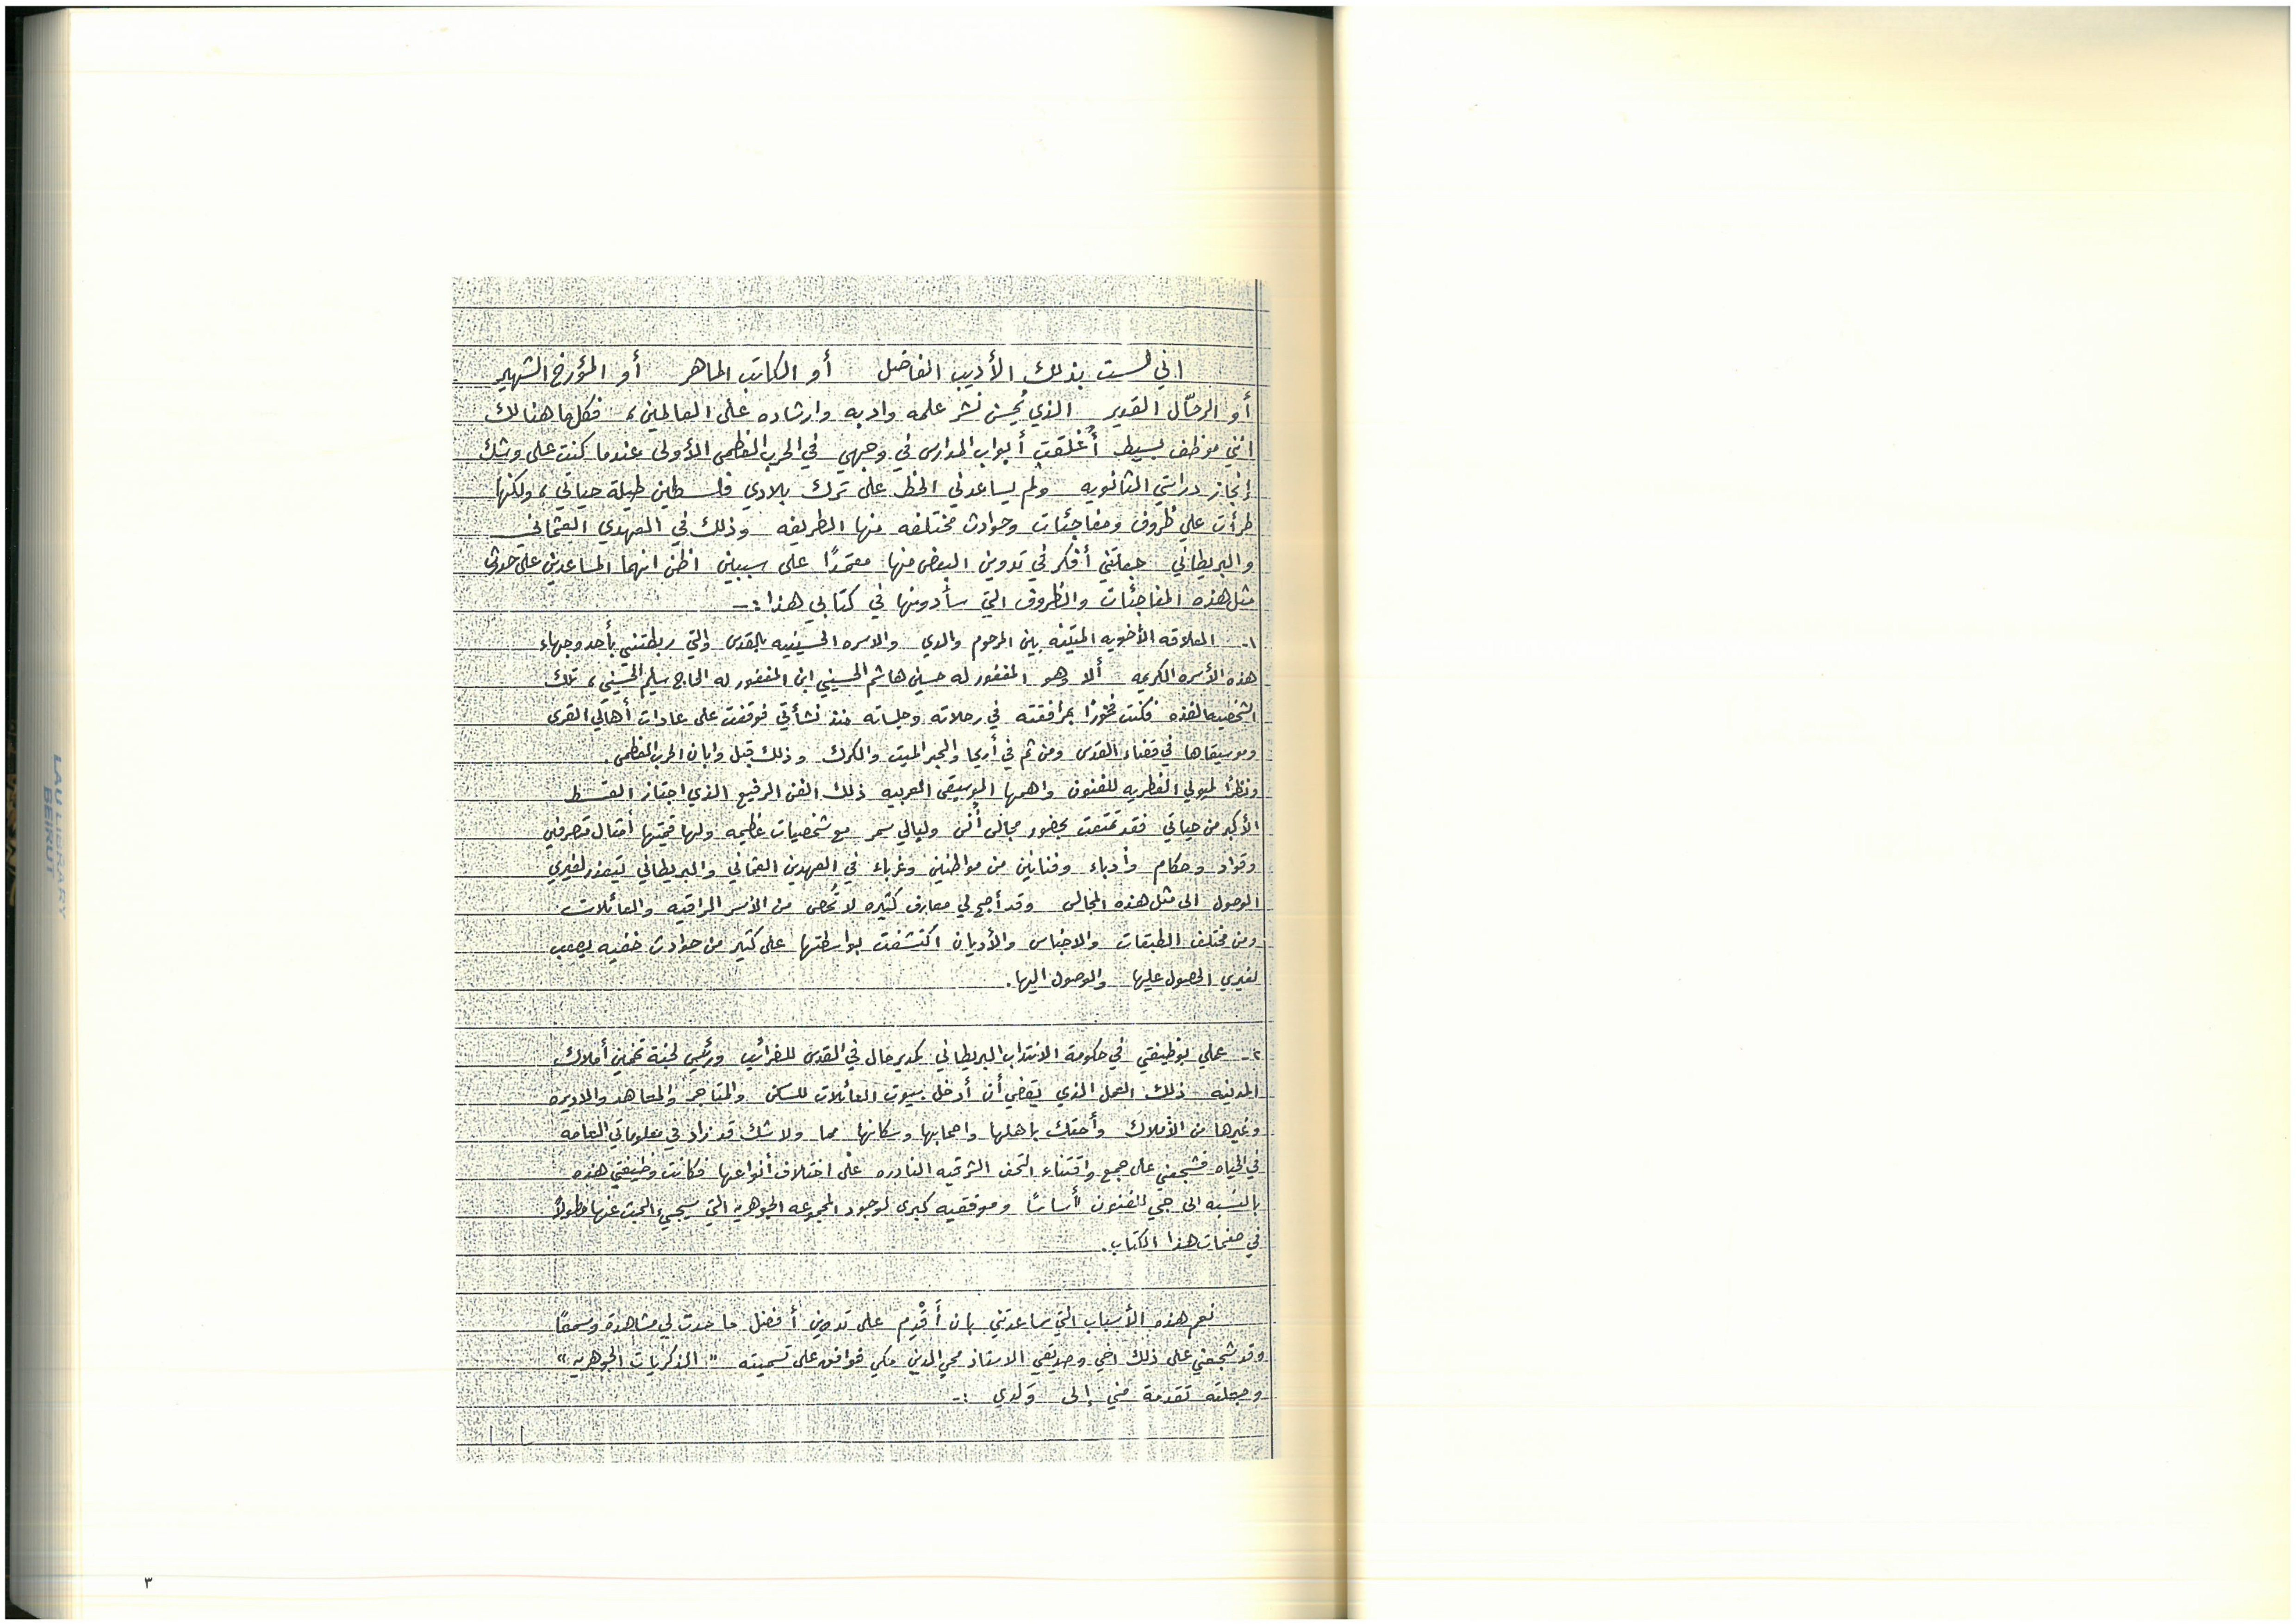 اني لست بذلك الأديب الفاضل أو الكاتب الماهر أو المؤرخ الشهير
أو الرحّال القدير الذي يُحسن نشر علمه وادبه وارشاده على العالمين، فكل ما هنالك
انني موظف بسيط أُغلقت أبواب المدارس في وجهي في الحرب العظمى الأولى عندما كنت على وشك
إنجاز دراستي الثانويه ولم يساعدني الحظ على ترك بلادي فلسطين طيلة حياتي، ولكنها
طرأت علي ظروف ومفاجئات وحوادث مختلفه منها الطريفه وذلك في العهدي العثماني
والبريطاني جعلتني أفكر في تدوين البعض منها معتمدًا على سببين اظن انهما المساعدين على حدوث
مثل هذه المفاجئات والظروف التي سأدونها في كتابي هذا :-
١- العلاقه الأخويه المتينه بين المرحوم والدي والاسره الحسينيه بالقدس والتي ربطتني بأحد وجهاء
هذه الأسره الكريمه ألا وهو المغفور له حسين هاشم الحسيني ابن المغفور له الحاج سليم الحسيني، تلك
الشخصيه الفذه فكنت فخورًا بمرافقته في رحلاته وجلساته منذ نشأتي فوقفت على عادات أهالي القرى
وموسيقاها في قضاء القدس ومن ثم في أريحا والبحر الميت والكرك وذلك قبل وابان الحرب العظمى.
ونظرًا لميولي الفطريه للفنون واهمها الموسيقى العربيه ذلك الفن الرفيع الذي اجتاز القسط
الأكبر من حياتي فقد تمتعت بحضور مجالس أُنس وليالي سمر مع شخصيات عظيمه ولها قيمتها أمثال متصرفين
وقواد وحكام وأدباء وفنانين من مواطنين وغرباء في العهدين العثماني والبريطاني ليتعذر لغيري
الوصول الى مثل هذه المجالس وقد أصبح لي معارف كثيره لا تُحصى من الأسر الراقيه والعائلات
ومن مختلف الطبقات والاجناس والأديان اكتشفت بواسطتها على كثير من حوادث خفيه يصعب
لغيري الحصول عليها والوصول اليها.
٢- عملي بوظيفتي في حكومة الانتداب البريطاني كمدير مال في القدس للضرائب ورئيس لجنة تخمين أملاك
المدينه ذلك العمل الذي يقضي أن أدخل بيوت العائلات للسكن والمتاجر والمعاهد والاديره
وغيرها من الأملاك وأحتك باهلها واصحابها وسكانها مما ولا شك قد زاد في معلوماتي العامه
في الحياه فشجعني على جمع واقتناء التحف الشرقيه النادره على اختلاف أنواعها فكانت وظيفتي هذه
بالنسبه الى حبي للفنون أساسًا وموفقيه كبرى لوجود المجموعه الجوهريه التي سيجيء البحث عنها مطولاً
في صفحات هذا الكتاب.
نعم هذه الأسباب التي ساعدتني بان أُقْدِم على تدوين أفضل ما حدث لي مشاهدة وسمعًا
وقد شجعني على ذلك اخي وصديقي الاستاذ محي الدين مكي فوافق على تسميته " الذكريات الجوهريه "
وجعلته تقدمة مني إلى وَلدي :-
٣
LAU LIBRARY
BEIRUT